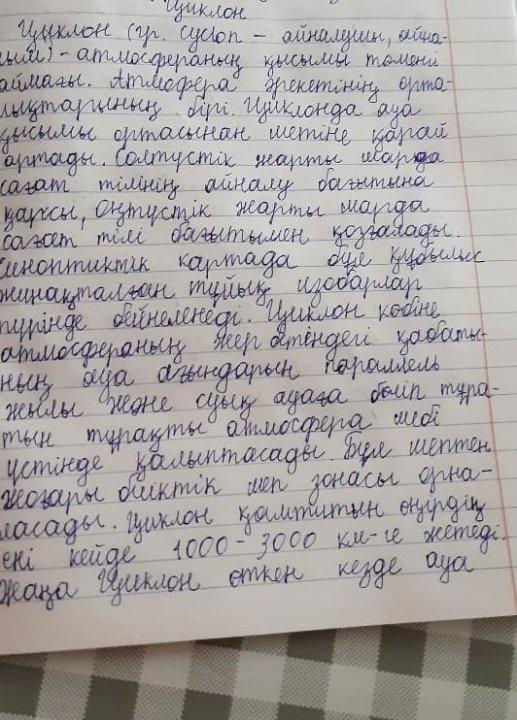 Циклон
Циклон (гр. cyclon – айналушы, айна-
лым) – атмосфераның қысымы төмен
аймағы. Атмофера әрекетінің орта-
лықтарының бірі. Циклонда ауа
қысымы ортасынан шетіне қарай
артады. Солтүстік жарты шарда
сағат тілінің айналу бағытына
қарсы, оңтүстік жарты шарда
сағат тілі бағытымен қозғалады.
Синоптиктік картада бұл құбылыс
жинақталған тұйық изобарлар
түрінде бейнеленеді. Циклон көбіне
атмосфераның жер бетіндегі қабаты-
ның ауа ағындарын параллель
жылы және суық ауаға бөліп тұра-
тын тұрақты атмосфера шебі
үстінде қалыптасады. Бұл шептен
жоғары биіктік шеп зонасы орна-
ласады. Циклон қамтитын өңірдің
ені кейде 1000 - 3000 км-ге жетеді.
Жаңа Циклон өткен кезде ауа